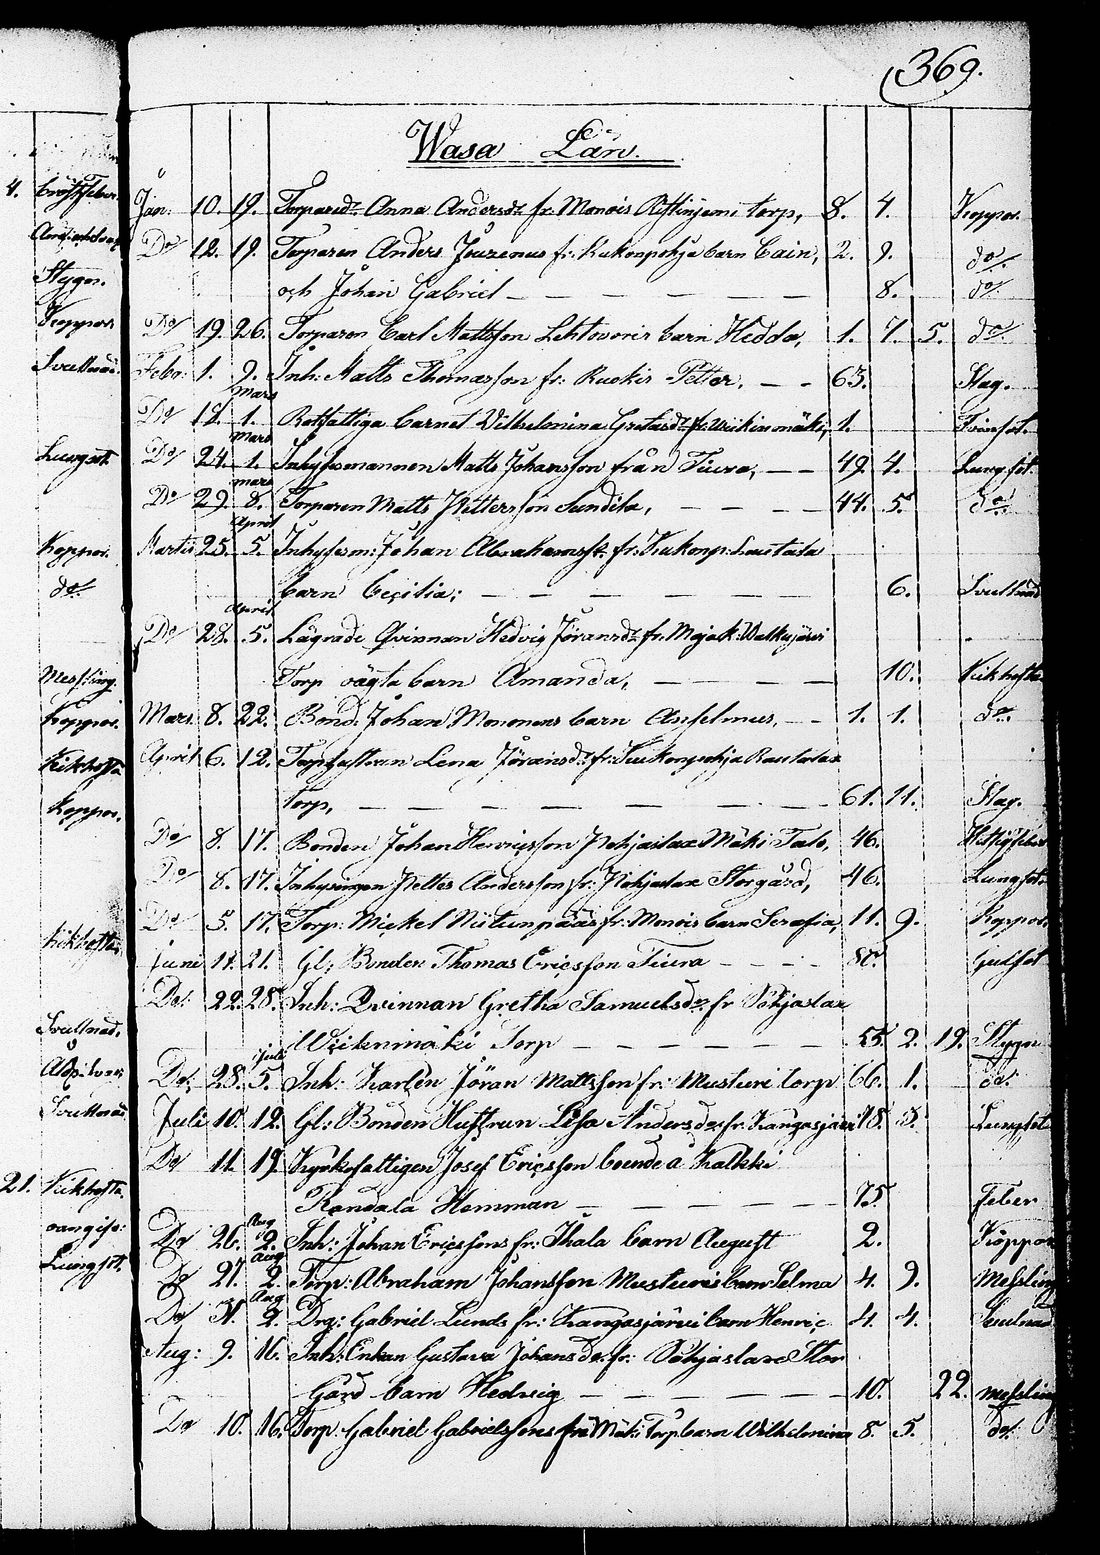 369.
Wasa Län.
4. bröstfeber.
Jan: 10. 19. Torparedr. Anna Andersdr fr. Monois torp, 8. 4. Koppor.
Do 12. 19. Torparen Anders fr: Kukonpohja barn Cain, 2. 9. do/.
Stygn.
och Johan Gabriel — — — — — 8. do/.
Koppor
Do 19. 26. Torparen Carl Mattsson barn Hedda, 1. 7. 5. do/.
Svullnad.
Febr: 1. 9. Inh: Matts Thomasson fr: Ruokis Petter, — — 63. Slag.
Mars
Do 18. 1. Rotfattiga barnet Vilhelmina Gretasdr fr. Wiikinmäki, 1.
Mars
Lungsot.
Do 24. 1. Inhysesmannen Matts Johansson från Tiura, — — 49. 4. Lungsot
mars
Do 29. 8. Torparen Matts Pettersson Sundila, — — — — 44. 5. do/.
April
Koppor.
Martii 25. 5. Inhysesm: Johan fr: Kukonp: Rautala
do/.
barn Cecilia; — — — — — 6. Svullnad
April
Do 28. 5. Lägrade Qvinnan Hedvig Jöransdr fr. Majak: Walkejärvi
Messling.
Torp oägta barn Amanda, — — — — 10. Kikhosta
Koppor.
Mars. 8. 22. Bond. Johan Mononens barn Anselmus, — — 1. 1. do.
Kikhosta
April 6. 12. Lena Jöransdr fr: Kukonpohja Rautalas
Koppor.
torp, — — — — — — — 61. 11. Slag.
Do 8. 17. Bonden Johan Henricsson Pohjaslax Mäki-Talo, 46.
Do 8. 17. Inhysingen Petter Andersson fr: Pohjaslax Storgård, 46. Lungsot.
Do 5. 17. Torp: Mickel Niitunpääs fr: Monois barn Serafia, 11. 9. Koppor.
Kikhosta.
Juni 11. 21. Gl; Bonden Thomas Ericsson Tiura — — — 80. Gulsot
Do: 22. 28. Inh: Qvinnan Gretha Samuelsdr. fr Pohjaslax
Svullnad.
Wiikinmäki Torp — — — — — 55. 2. 19. Stygn
Juli
Do. 28. 5. Inh: Karlen Jöran Mattsson fr: Musturi torp 66. 1. do.
Svullnad
Juli 10. 12. Gl: Bonden Hustrun Lisa Andersdr. fr. Kangasjärvi 78. 3. Lungsot
Do 11. 19. Kyrkofattigen Josef Ericsson boende å Kalkki
21. Kikhosta.
Randala Hemman — — — — — 75. Feber
Aug
Do 26. 2. Inh: Johan Ericssons fr: Ihala barn August 2. Koppor
Aug
Lungsot.
Do 27. 2. Torp: Abraham Johansson Musturis barn Selma 4. 9. Messling
Aug
Do 31. 2. Drg: Gabriel Lunds fr: Kangasjärvi barn Henric 4. 4. Svullnad
Aug: 9. 16. Inh: Enkan Gustava Johansdr. fr: Pohjaslax Stor
Gård barn Hedvig — — — — — 10. 22. messling
Do 10. 16. Torp: Gabriel Gabrielssons från Mäki Torp barn Wilhelmina 8. 5. do.